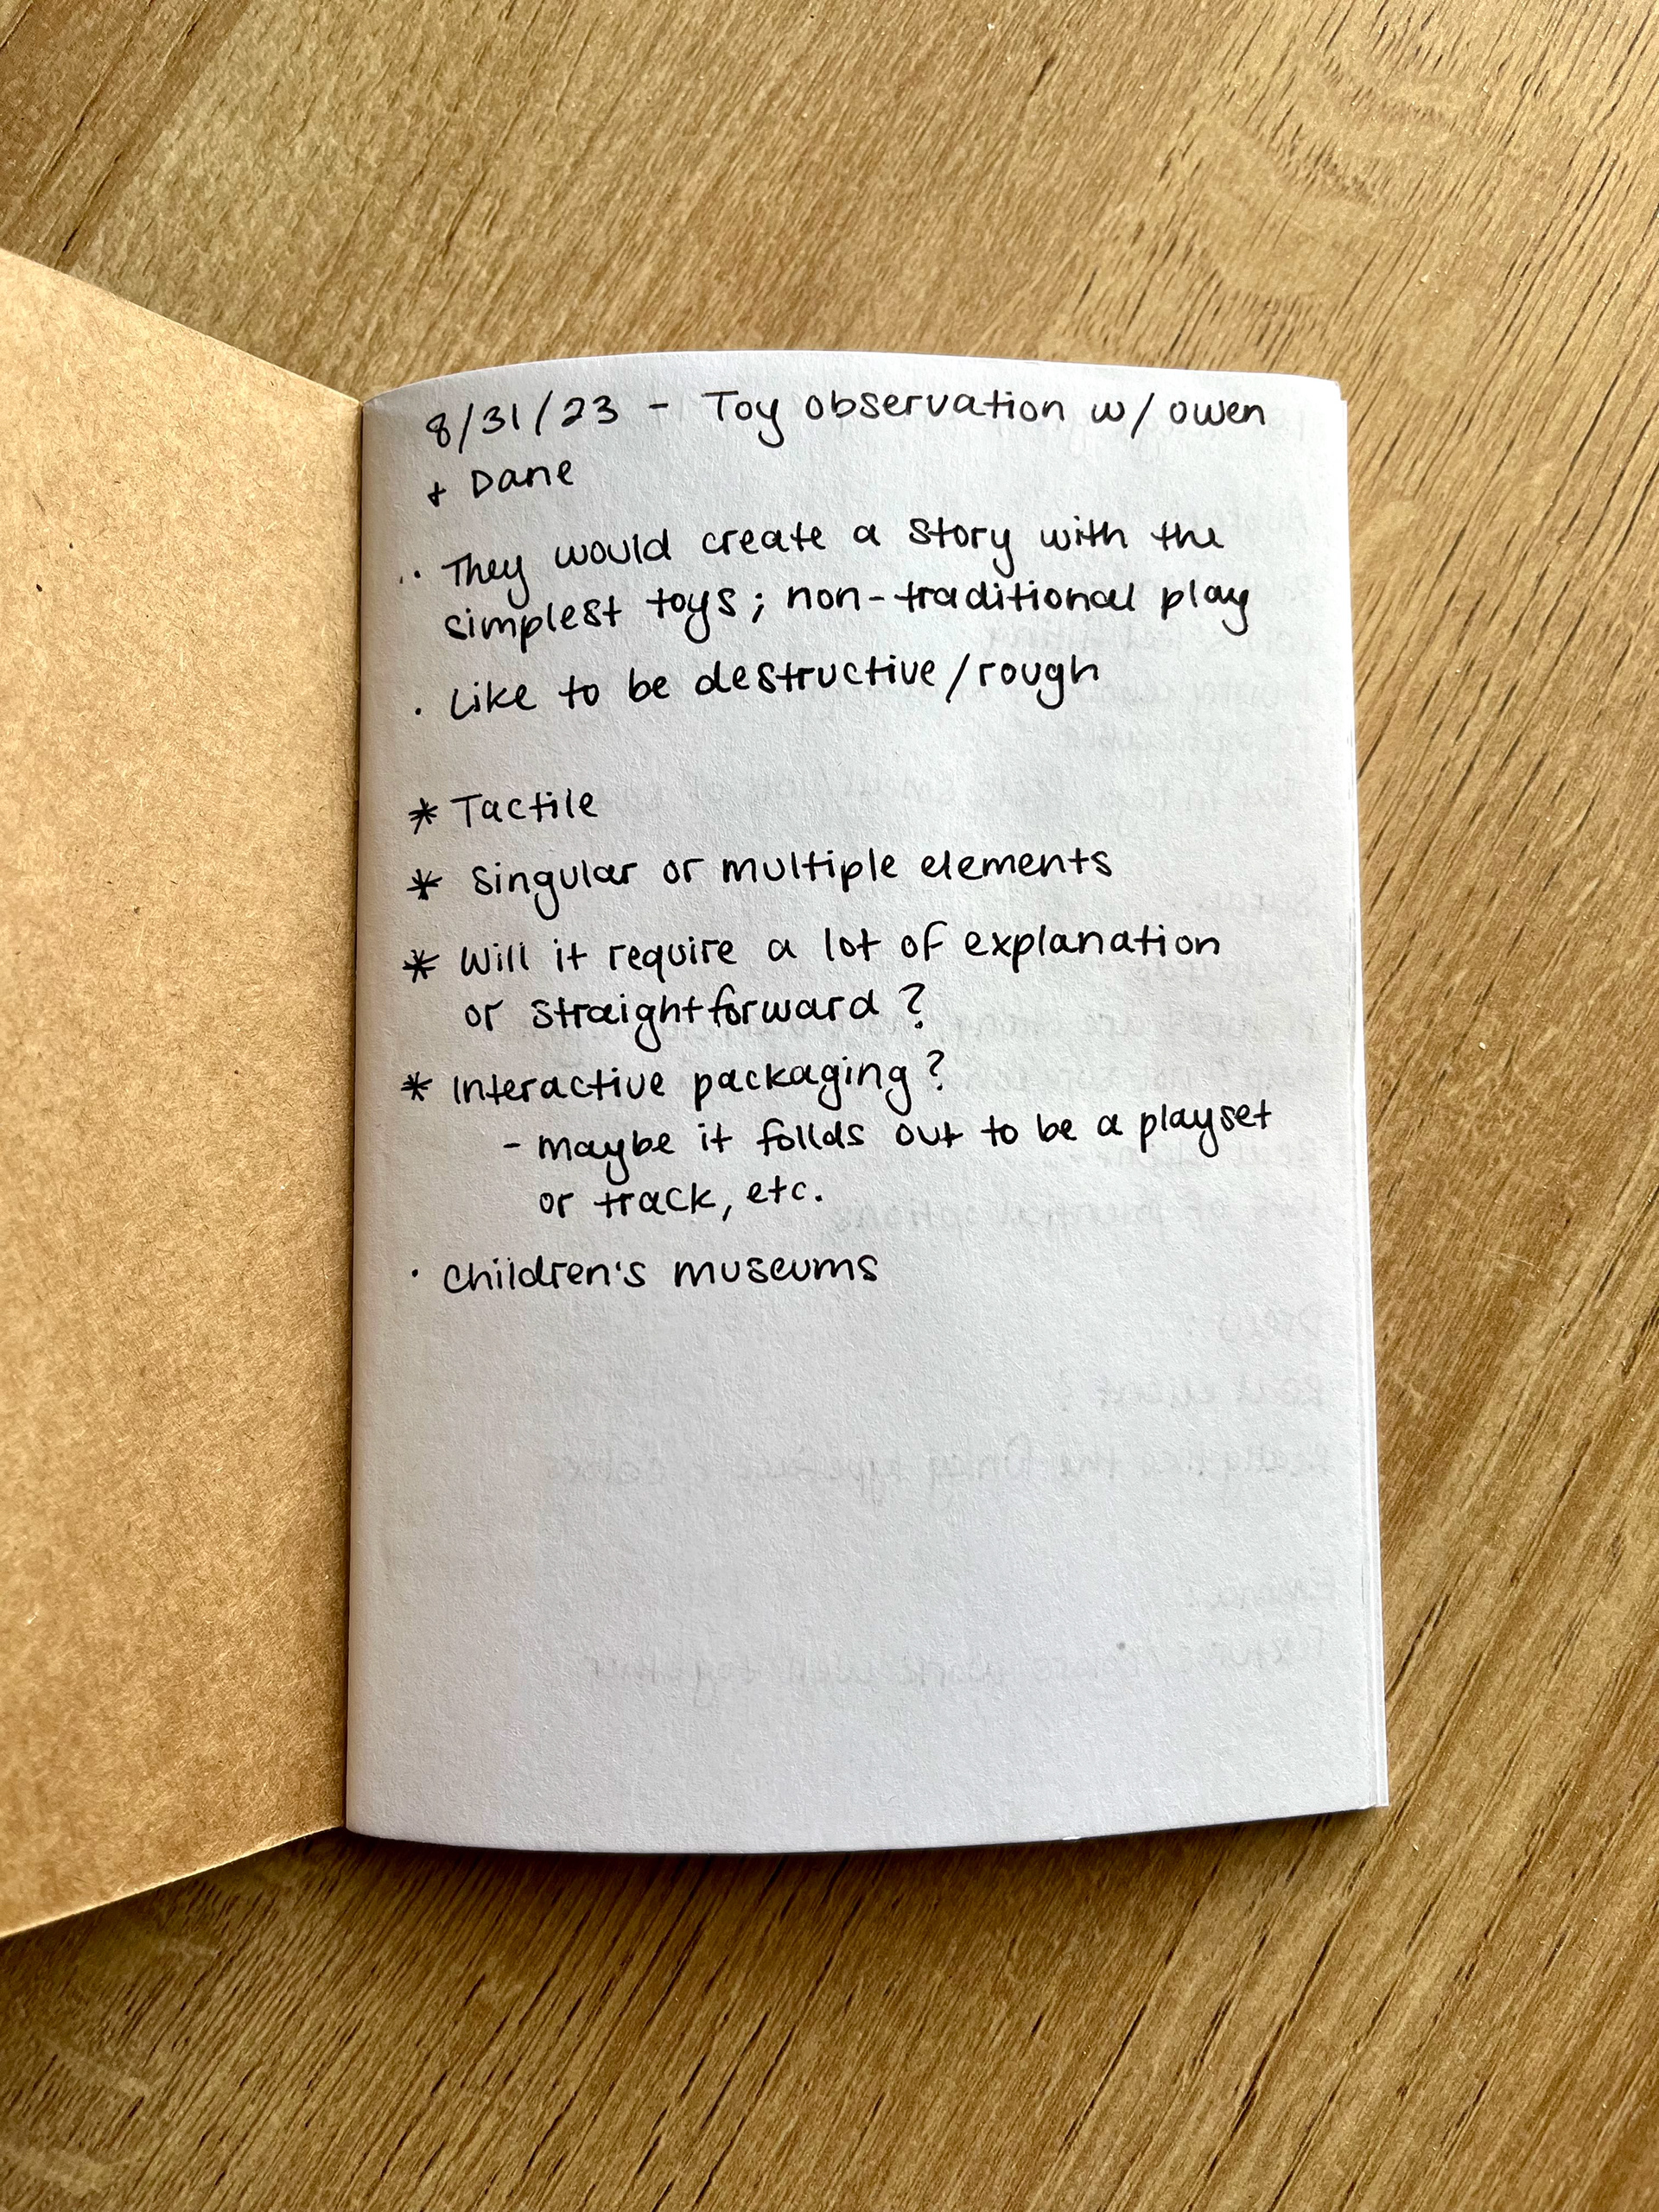 8/31/23 - Toy observation w/ owen
+ Dane
· They would create a story with the
simplest toys; non-traditional play
· Like to be destructive/rough
* Tactile
* Singular or multiple elements
* Will it require a lot of explanation
or straightforward?
* Interactive packaging?
- maybe it follds out to be a playset
or track, etc.
· children's museums